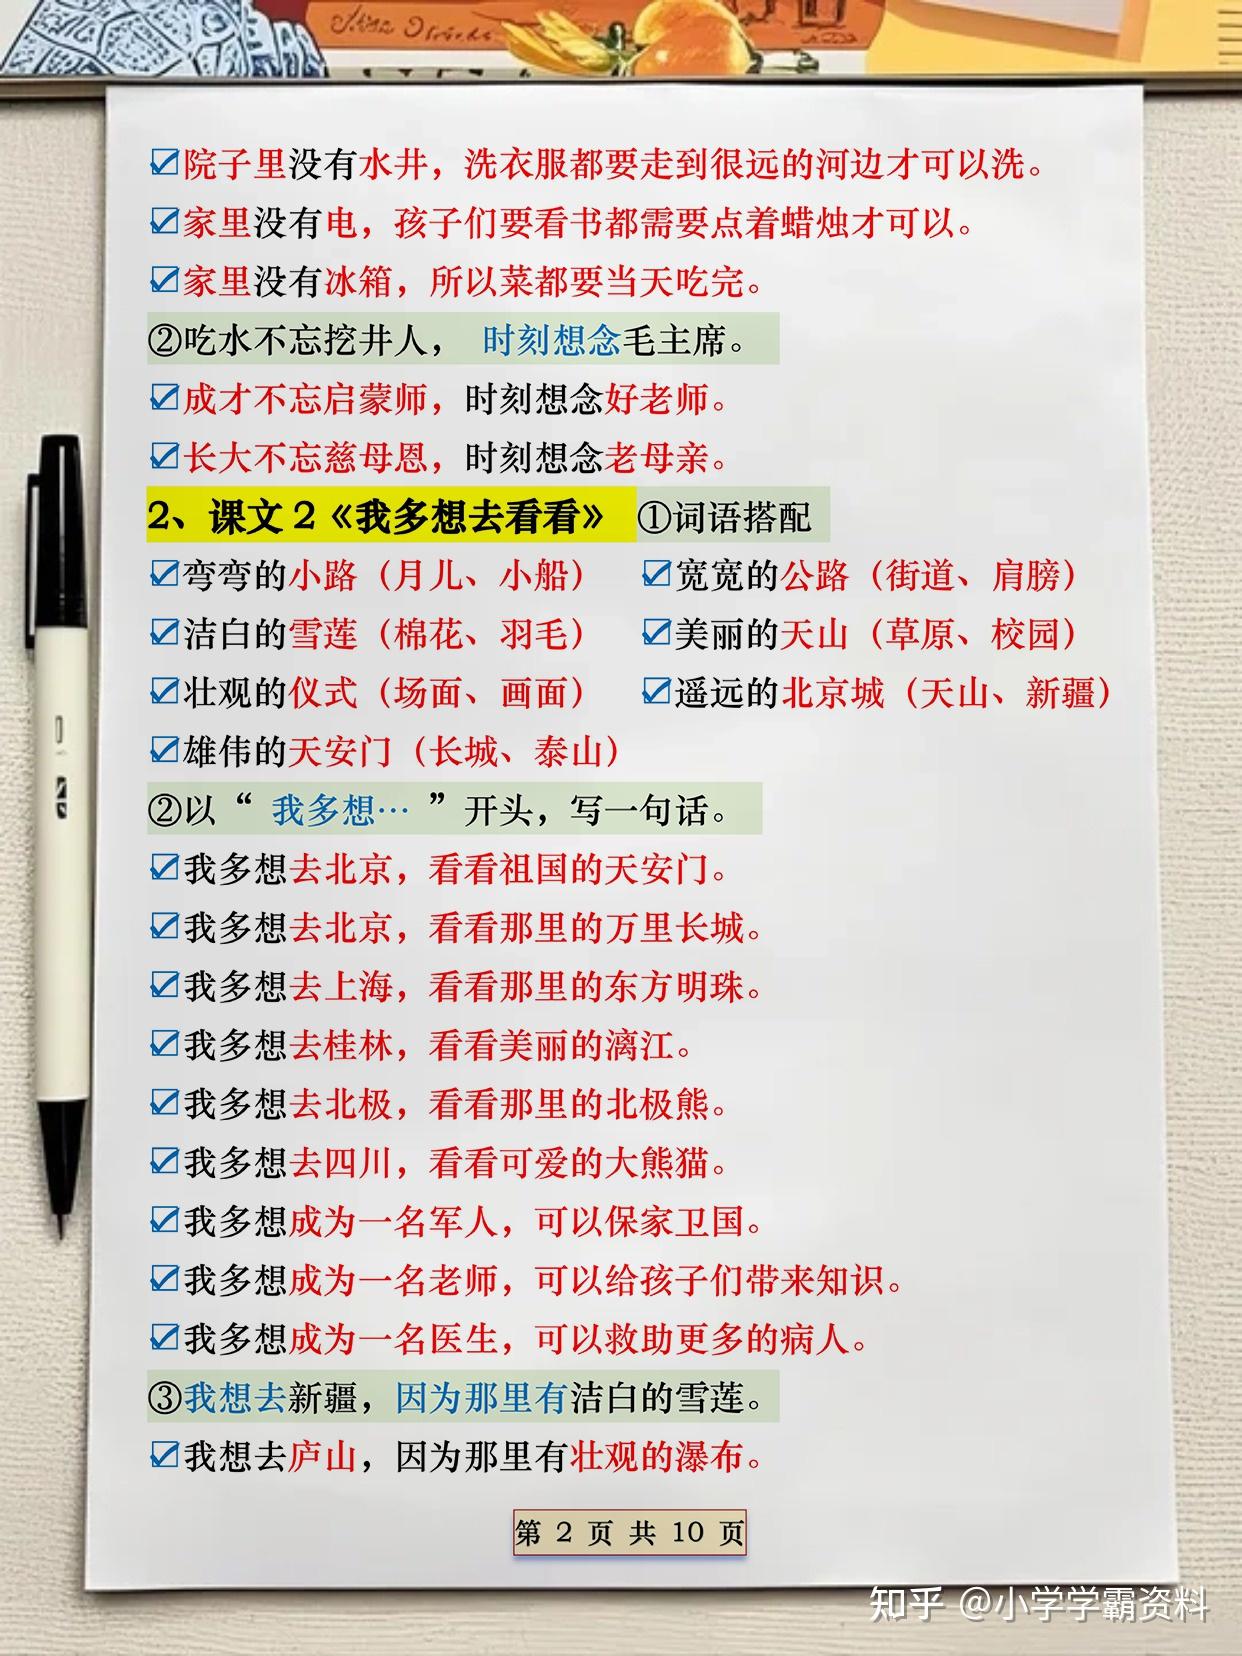 ☑院子里没有水井，洗衣服都要走到很远的河边才可以洗。
☑家里没有电，孩子们要看书都需要点着蜡烛才可以。
☑家里没有冰箱，所以菜都要当天吃完。
②吃水不忘挖井人， 时刻想念毛主席。
☑成才不忘启蒙师，时刻想念好老师。
☑长大不忘慈母恩，时刻想念老母亲。
2、课文 2《我多想去看看》 ①词语搭配
☑弯弯的小路（月儿、小船） ☑宽宽的公路（街道、肩膀）
☑洁白的雪莲（棉花、羽毛） ☑美丽的天山（草原、校园）
☑壮观的仪式（场面、画面） ☑遥远的北京城（天山、新疆）
☑雄伟的天安门（长城、泰山）
②以“ 我多想… ”开头，写一句话。
☑我多想去北京，看看祖国的天安门。
☑我多想去北京，看看那里的万里长城。
☑我多想去上海，看看那里的东方明珠。
☑我多想去桂林，看看美丽的漓江。
☑我多想去北极，看看那里的北极熊。
☑我多想去四川，看看可爱的大熊猫。
☑我多想成为一名军人，可以保家卫国。
☑我多想成为一名老师，可以给孩子们带来知识。
☑我多想成为一名医生，可以救助更多的病人。
③我想去新疆，因为那里有洁白的雪莲。
☑我想去庐山，因为那里有壮观的瀑布。
第 2 页 共 10 页
知乎 @小学学霸资料